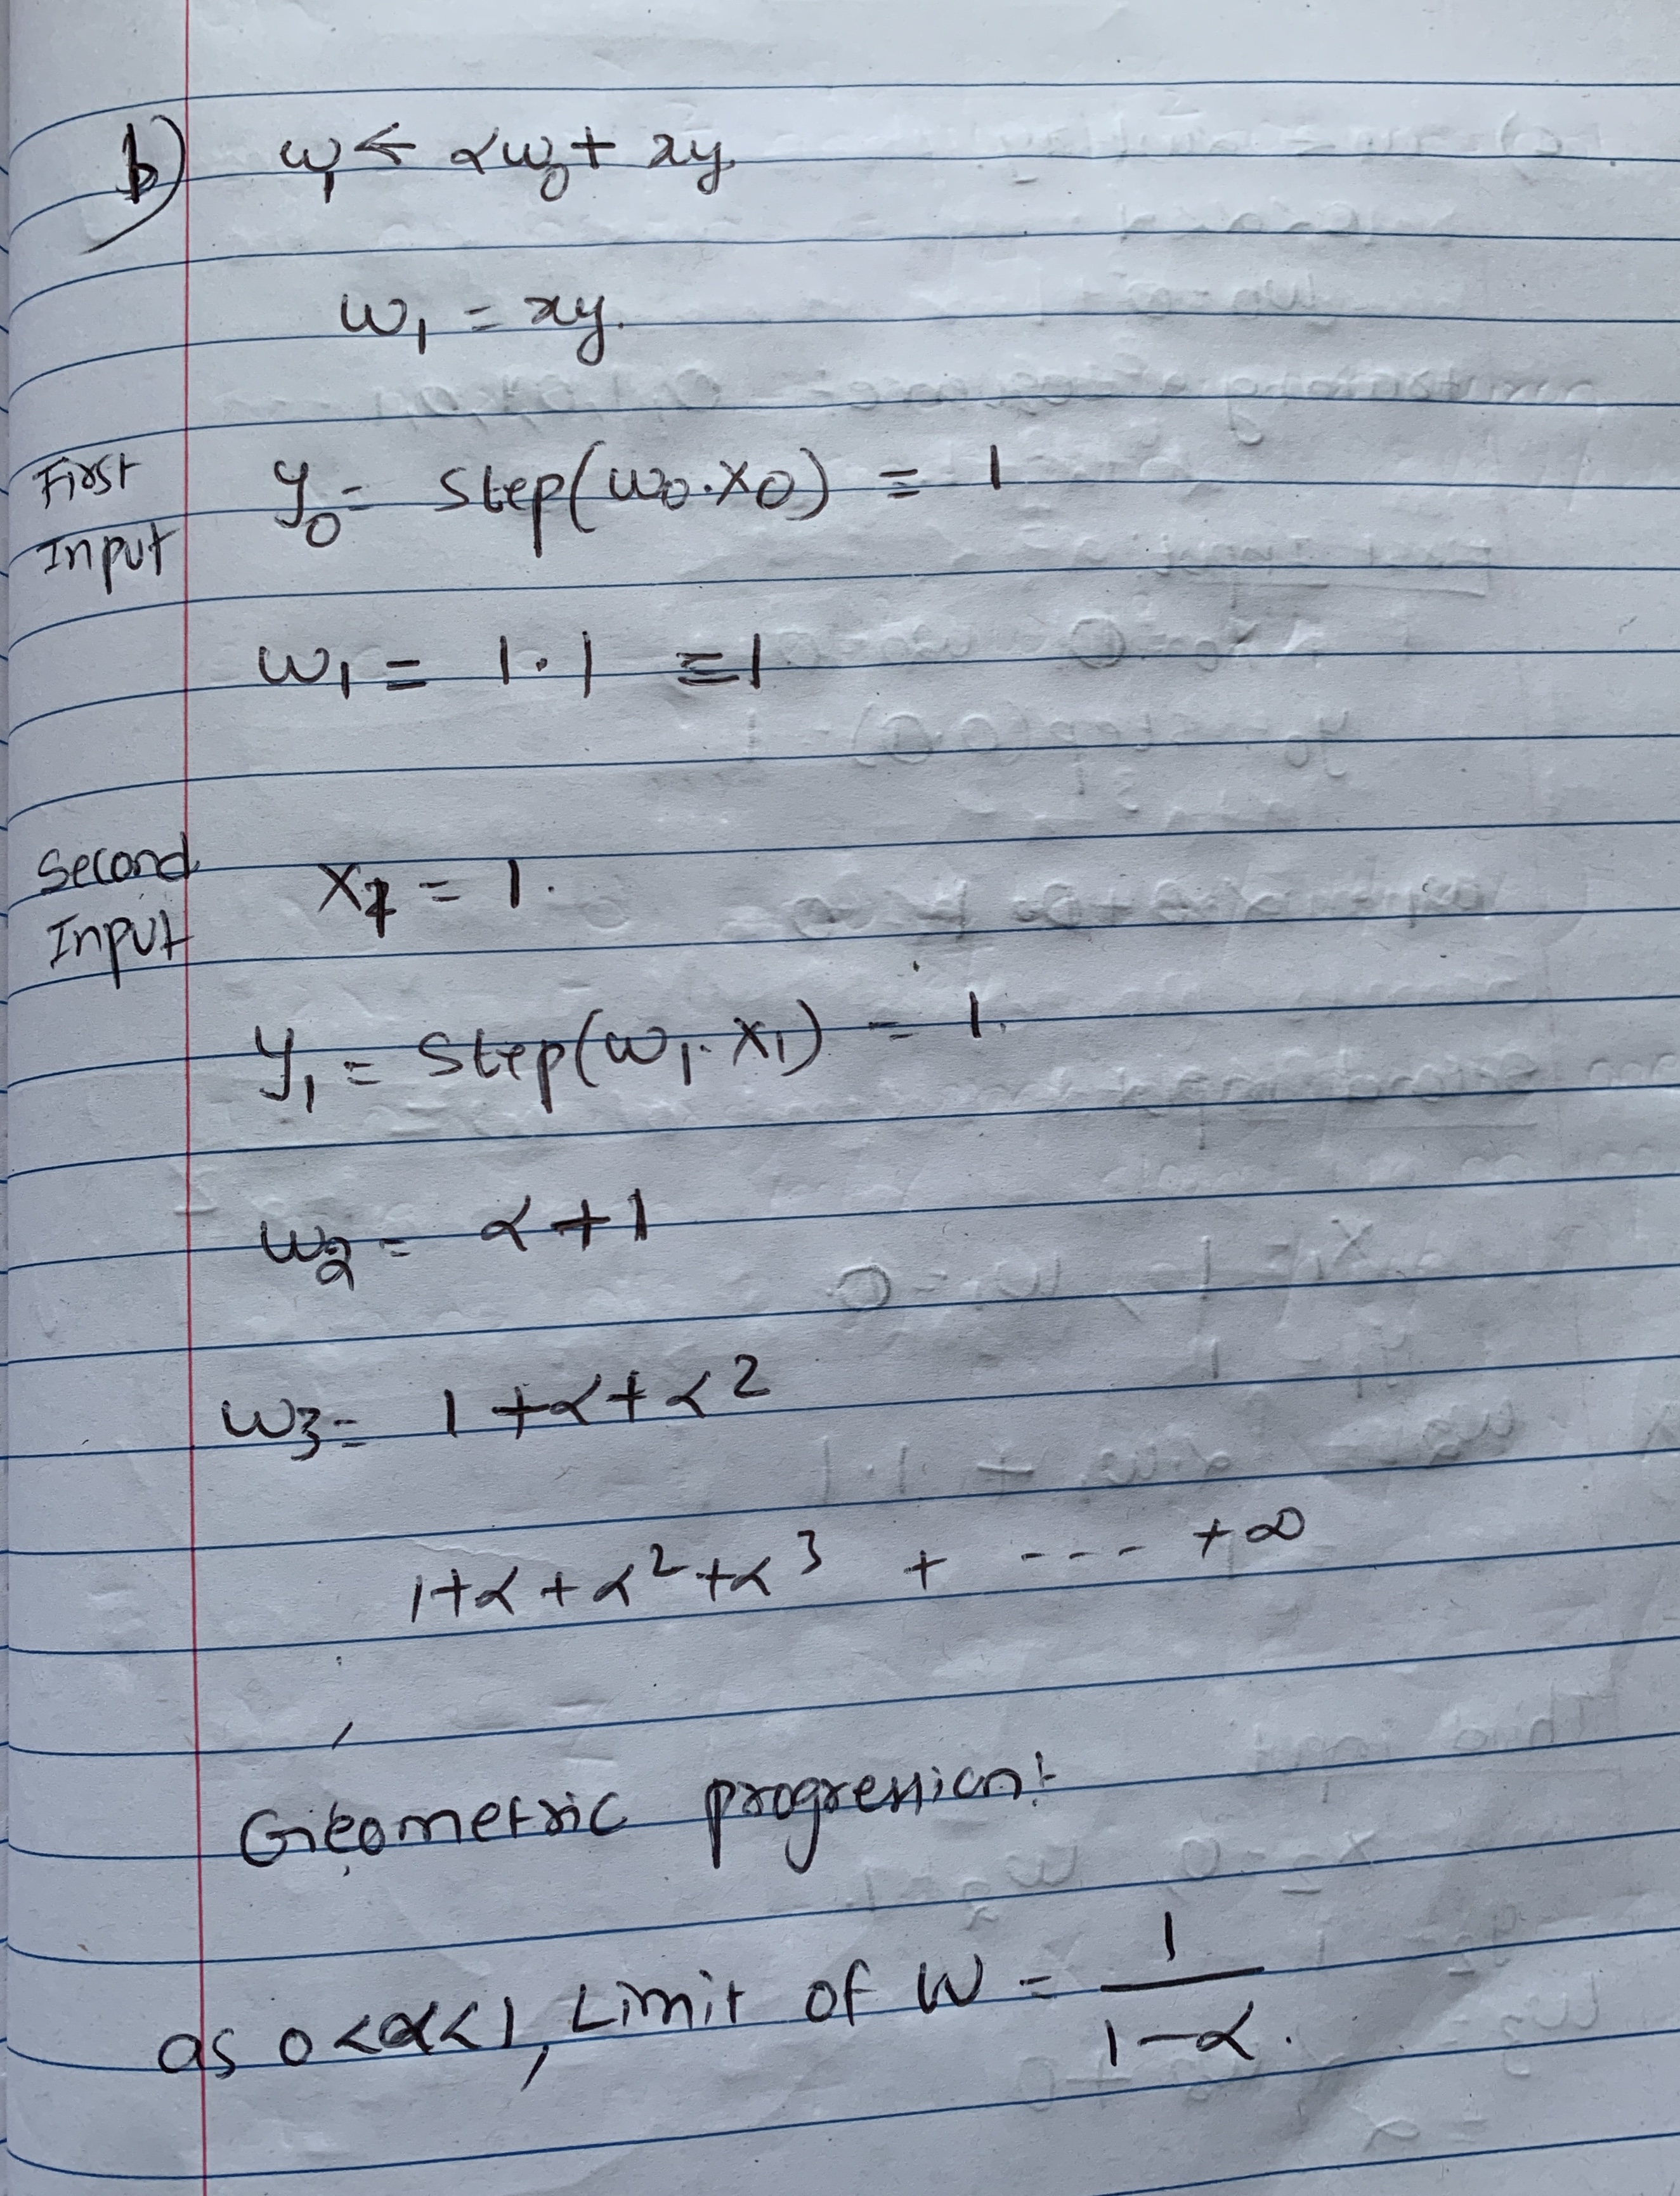 b) w₁ ← αw₀ + xy.
w₁ = xy.
First Input
y₀ = Step(w₀.x₀) = 1
w₁ = 1.1 = 1
Second Input
x₁ = 1.
y₁ = Step(w₁.x₁) = 1.
w₂ = α+1
w₃ = 1+α+α²
1+α+α²+α³ + ---- +∞
Geometric progression:
as 0<α<1, Limit of W = 1/(1-α).